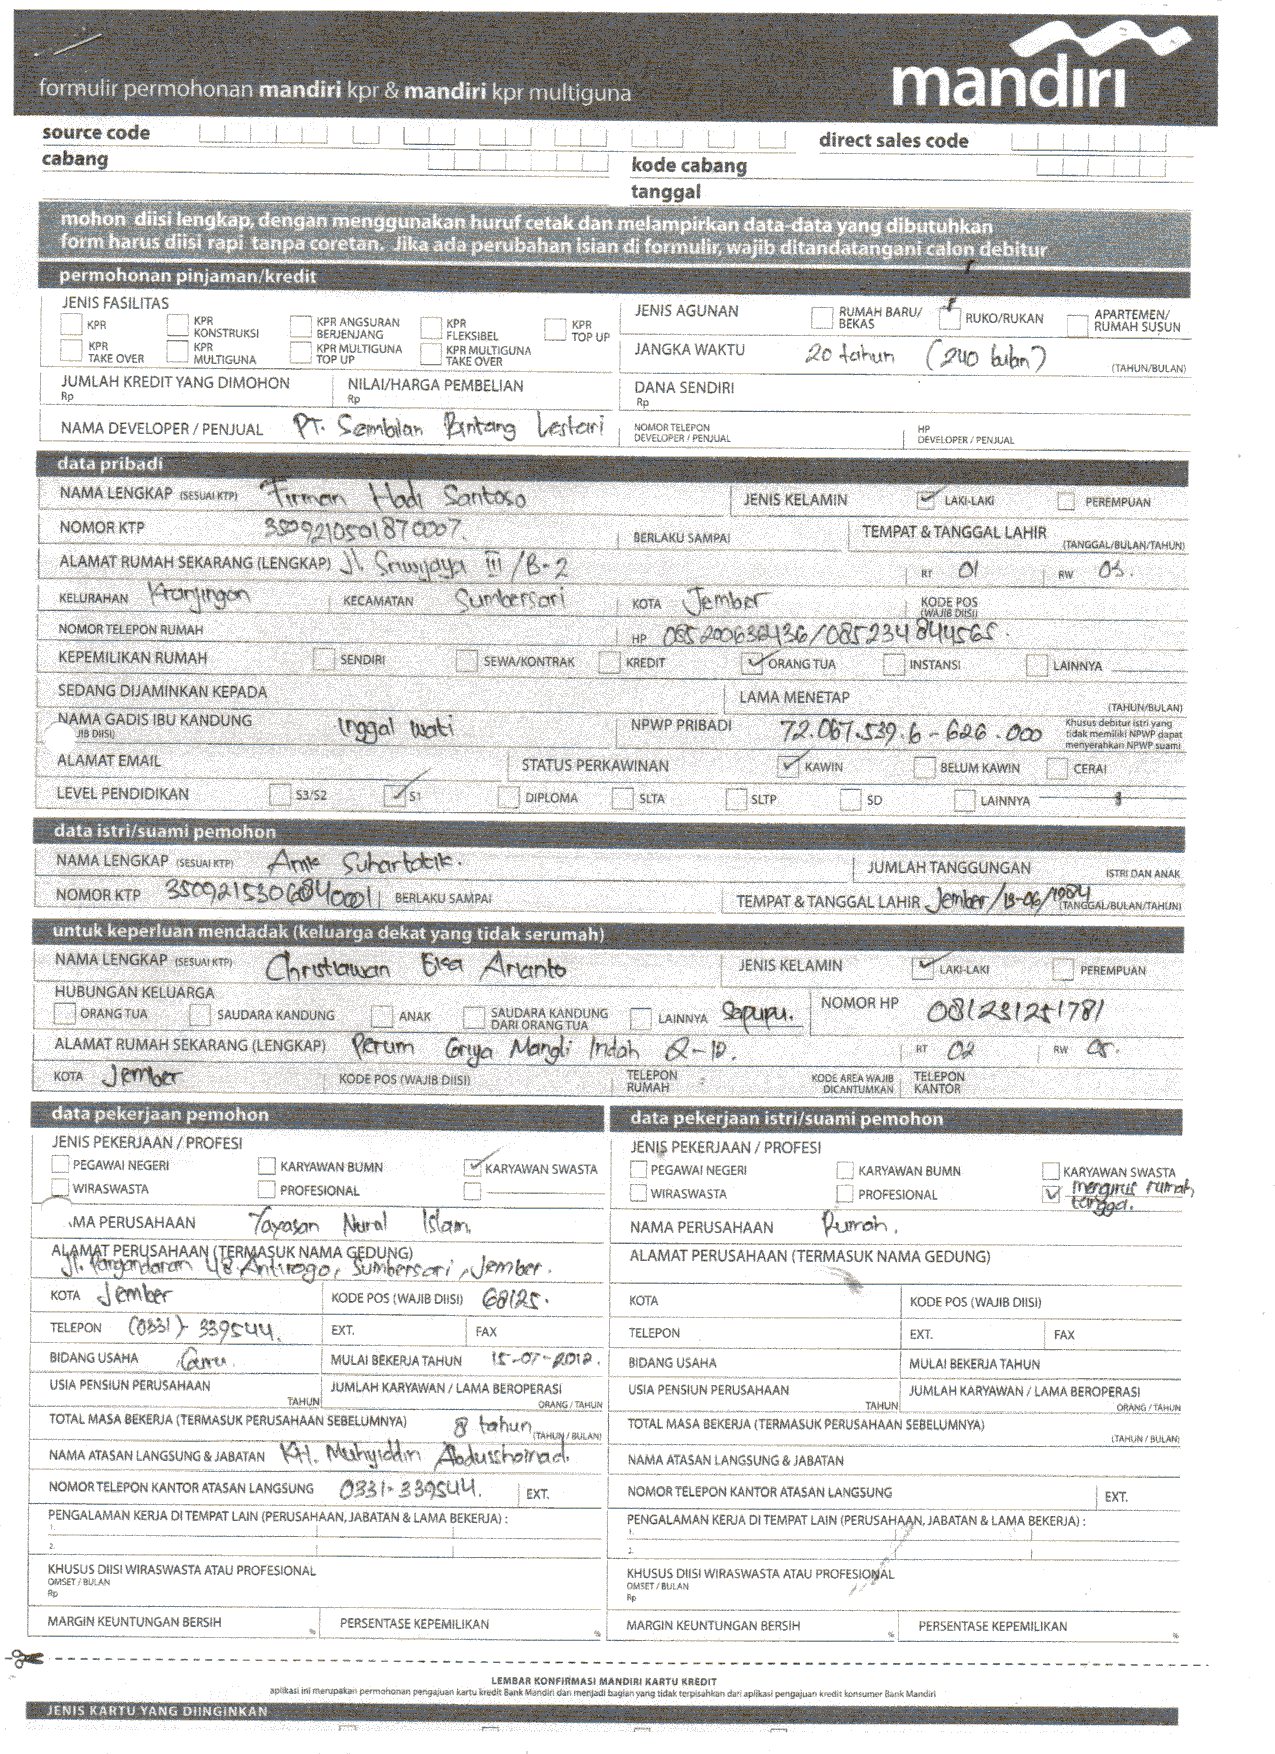 mandiri
formulir permohonan mandiri kpr & mandiri kpr multiguna
source code direct sales code
cabang kode cabang
tanggal
mohon diisi lengkap, dengan menggunakan huruf cetak dan melampirkan data-data yang dibutuhkan
form harus diisi rapi tanpa coretan. Jika ada perubahan isian di formulir, wajib ditandatangani calon debitur
permohonan pinjaman/kredit
JENIS FASILITAS
KPR KPR KONSTRUKSI KPR ANGSURAN BERJENJANG KPR FLEKSIBEL KPR TOP UP
KPR TAKE OVER KPR MULTIGUNA KPR MULTIGUNA TOP UP KPR MULTIGUNA TAKE OVER
JENIS AGUNAN RUMAH BARU/ BEKAS RUKO/RUKAN APARTEMEN/ RUMAH SUSUN
JANGKA WAKTU 20 tahun (240 bulan) (TAHUN/BULAN)
JUMLAH KREDIT YANG DIMOHON Rp NILAI/HARGA PEMBELIAN Rp DANA SENDIRI Rp
NAMA DEVELOPER / PENJUAL PT. Sembilan Bintang Lestari NOMOR TELEPON DEVELOPER / PENJUAL HP DEVELOPER / PENJUAL
data pribadi
NAMA LENGKAP (SESUAI KTP) Firman Hadi Santoso JENIS KELAMIN LAKI-LAKI PEREMPUAN
NOMOR KTP 3509210501870007 BERLAKU SAMPAI TEMPAT & TANGGAL LAHIR (TANGGAL/BULAN/TAHUN)
ALAMAT RUMAH SEKARANG (LENGKAP) Jl. Sriwijaya III /B-2 RT 01 RW 03.
KELURAHAN Kranjingan KECAMATAN Sumbersari KOTA Jember KODE POS (WAJIB DIISI)
NOMOR TELEPON RUMAH HP 085200632436/085234844565.
KEPEMILIKAN RUMAH SENDIRI SEWA/KONTRAK KREDIT ORANG TUA INSTANSI LAINNYA
SEDANG DIJAMINKAN KEPADA LAMA MENETAP (TAHUN/BULAN)
NAMA GADIS IBU KANDUNG Inggal wati NPWP PRIBADI 72.067.539.6-626.000 Khusus debitur istri yang
JIB DIISI) tidak memiliki NPWP dapat
menyerahkan NPWP suami
ALAMAT EMAIL STATUS PERKAWINAN KAWIN BELUM KAWIN CERAI
LEVEL PENDIDIKAN S3/S2 S1 DIPLOMA SLTA SLTP SD LAINNYA
data istri/suami pemohon
NAMA LENGKAP (SESUAI KTP) Anik Suhartatik. JUMLAH TANGGUNGAN ISTRI DAN ANAK
NOMOR KTP 3509215306840001 BERLAKU SAMPAI TEMPAT & TANGGAL LAHIR Jember/13-06/1984 (TANGGAL/BULAN/TAHUN)
untuk keperluan mendadak (keluarga dekat yang tidak serumah)
NAMA LENGKAP (SESUAI KTP) Christiawan Eka Arianto JENIS KELAMIN LAKI-LAKI PEREMPUAN
HUBUNGAN KELUARGA
ORANG TUA SAUDARA KANDUNG ANAK SAUDARA KANDUNG DARI ORANG TUA LAINNYA Sepupu. NOMOR HP 081231251781
ALAMAT RUMAH SEKARANG (LENGKAP) Perum Griya Mangli Indah Q-12. RT 02 RW 05.
KOTA Jember KODE POS (WAJIB DIISI) TELEPON RUMAH KODE AREA WAJIB DICANTUMKAN TELEPON KANTOR
data pekerjaan pemohon
JENIS PEKERJAAN / PROFESI
PEGAWAI NEGERI KARYAWAN BUMN KARYAWAN SWASTA
WIRASWASTA PROFESIONAL
MA PERUSAHAAN Yayasan Nurul Islam
ALAMAT PERUSAHAAN (TERMASUK NAMA GEDUNG)
Jl. Pangandaran 48 Antirogo, Sumbersari, Jember.
KOTA Jember KODE POS (WAJIB DIISI) 68125.
TELEPON (0331)-339544. EXT. FAX
BIDANG USAHA Guru. MULAI BEKERJA TAHUN 15-07-2012.
USIA PENSIUN PERUSAHAAN TAHUN JUMLAH KARYAWAN / LAMA BEROPERASI ORANG / TAHUN
TOTAL MASA BEKERJA (TERMASUK PERUSAHAAN SEBELUMNYA) 8 tahun (TAHUN / BULAN)
NAMA ATASAN LANGSUNG & JABATAN KH. Muhyiddin Abdusshomad.
NOMOR TELEPON KANTOR ATASAN LANGSUNG 0331-339544. EXT.
PENGALAMAN KERJA DI TEMPAT LAIN (PERUSAHAAN, JABATAN & LAMA BEKERJA) :
1.
2.
KHUSUS DIISI WIRASWASTA ATAU PROFESIONAL
OMSET / BULAN
Rp
MARGIN KEUNTUNGAN BERSIH % PERSENTASE KEPEMILIKAN %
data pekerjaan istri/suami pemohon
JENIS PEKERJAAN / PROFESI
PEGAWAI NEGERI KARYAWAN BUMN KARYAWAN SWASTA
WIRASWASTA PROFESIONAL mengurus rumah tangga.
NAMA PERUSAHAAN Rumah.
ALAMAT PERUSAHAAN (TERMASUK NAMA GEDUNG)
KOTA KODE POS (WAJIB DIISI)
TELEPON EXT. FAX
BIDANG USAHA MULAI BEKERJA TAHUN
USIA PENSIUN PERUSAHAAN TAHUN JUMLAH KARYAWAN / LAMA BEROPERASI ORANG / TAHUN
TOTAL MASA BEKERJA (TERMASUK PERUSAHAAN SEBELUMNYA) (TAHUN / BULAN)
NAMA ATASAN LANGSUNG & JABATAN
NOMOR TELEPON KANTOR ATASAN LANGSUNG EXT.
PENGALAMAN KERJA DI TEMPAT LAIN (PERUSAHAAN, JABATAN & LAMA BEKERJA) :
1.
2.
KHUSUS DIISI WIRASWASTA ATAU PROFESIONAL
OMSET / BULAN
Rp
MARGIN KEUNTUNGAN BERSIH % PERSENTASE KEPEMILIKAN %
LEMBAR KONFIRMASI MANDIRI KARTU KREDIT
aplikasi ini merupakan permohonan pengajuan kartu kredit Bank Mandiri dan menjadi bagian yang tidak terpisahkan dari aplikasi pengajuan kredit konsumer Bank Mandiri
JENIS KARTU YANG DIINGINKAN